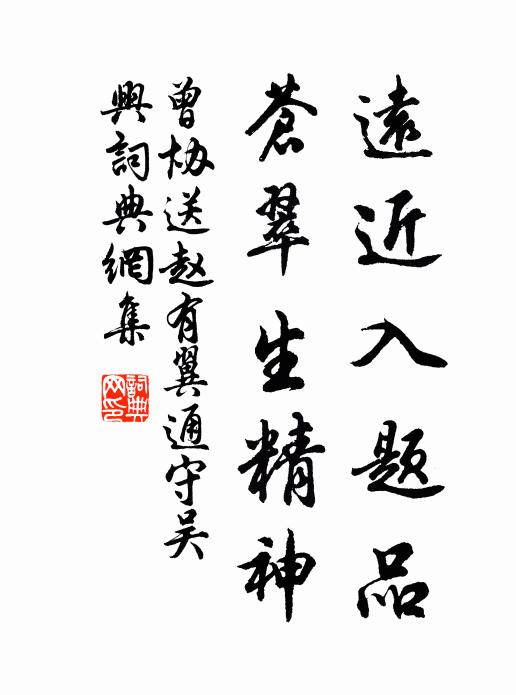 遠近入题品
蒼翠生精神
曾协送赵有翼通守吴
興詞典網集
詞典网印